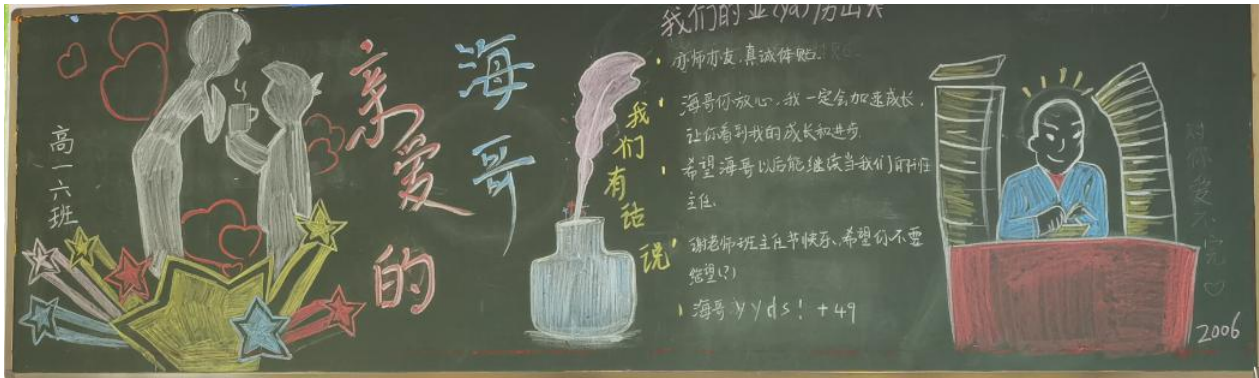 高一六班
亲爱的
海哥
我们有话说
我们的亚(ya)历山大
亦师亦友,真诚体贴.
海哥你放心,我一定会加速成长,
让你看到我的成长和进步.
希望海哥以后能继续当我们的班
主任.
谢老师班主任节快乐、希望你不要
望(?)
海哥yyds! +49
对你爱不完♡
2006